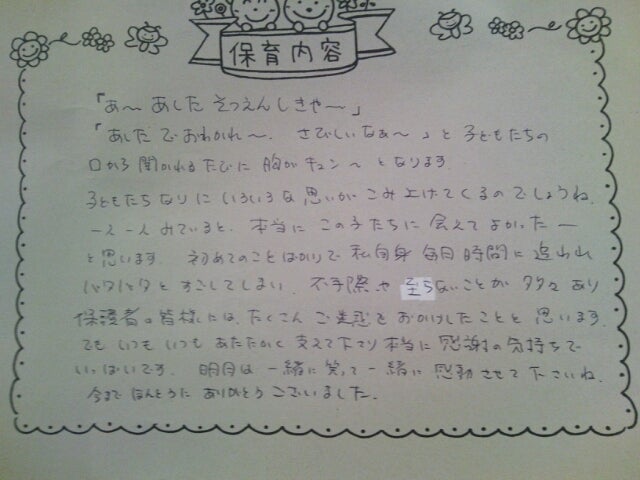 保育内容
「あ〜 あした そつえんしきや〜」
「あした で おわかれ〜. さびしいなぁ〜」と 子どもたちの
口から 聞かれる たびに 胸が キュン〜 と なります.
子どもたち なりに いろいろな 思いが こみ上げてくるのでしょうね.
一人一人 みていると、本当に この子たちに 会えて よかった ー
と思います. 初めてのことばかりで 私自身 毎日 時間に 追われ
バタバタと すごしてしまい、不手際や 至らないことが 多々 あり
保護者の 皆様には、たくさん ご迷惑を おかけしたことと 思います.
でも いつも いつも あたたかく 支えて下さり 本当に 感謝の 気持ちで
いっぱいです. 明日は 一緒に 笑って 一緒に 感動させて 下さいね.
今まで ほんとうに ありがとう ございました.